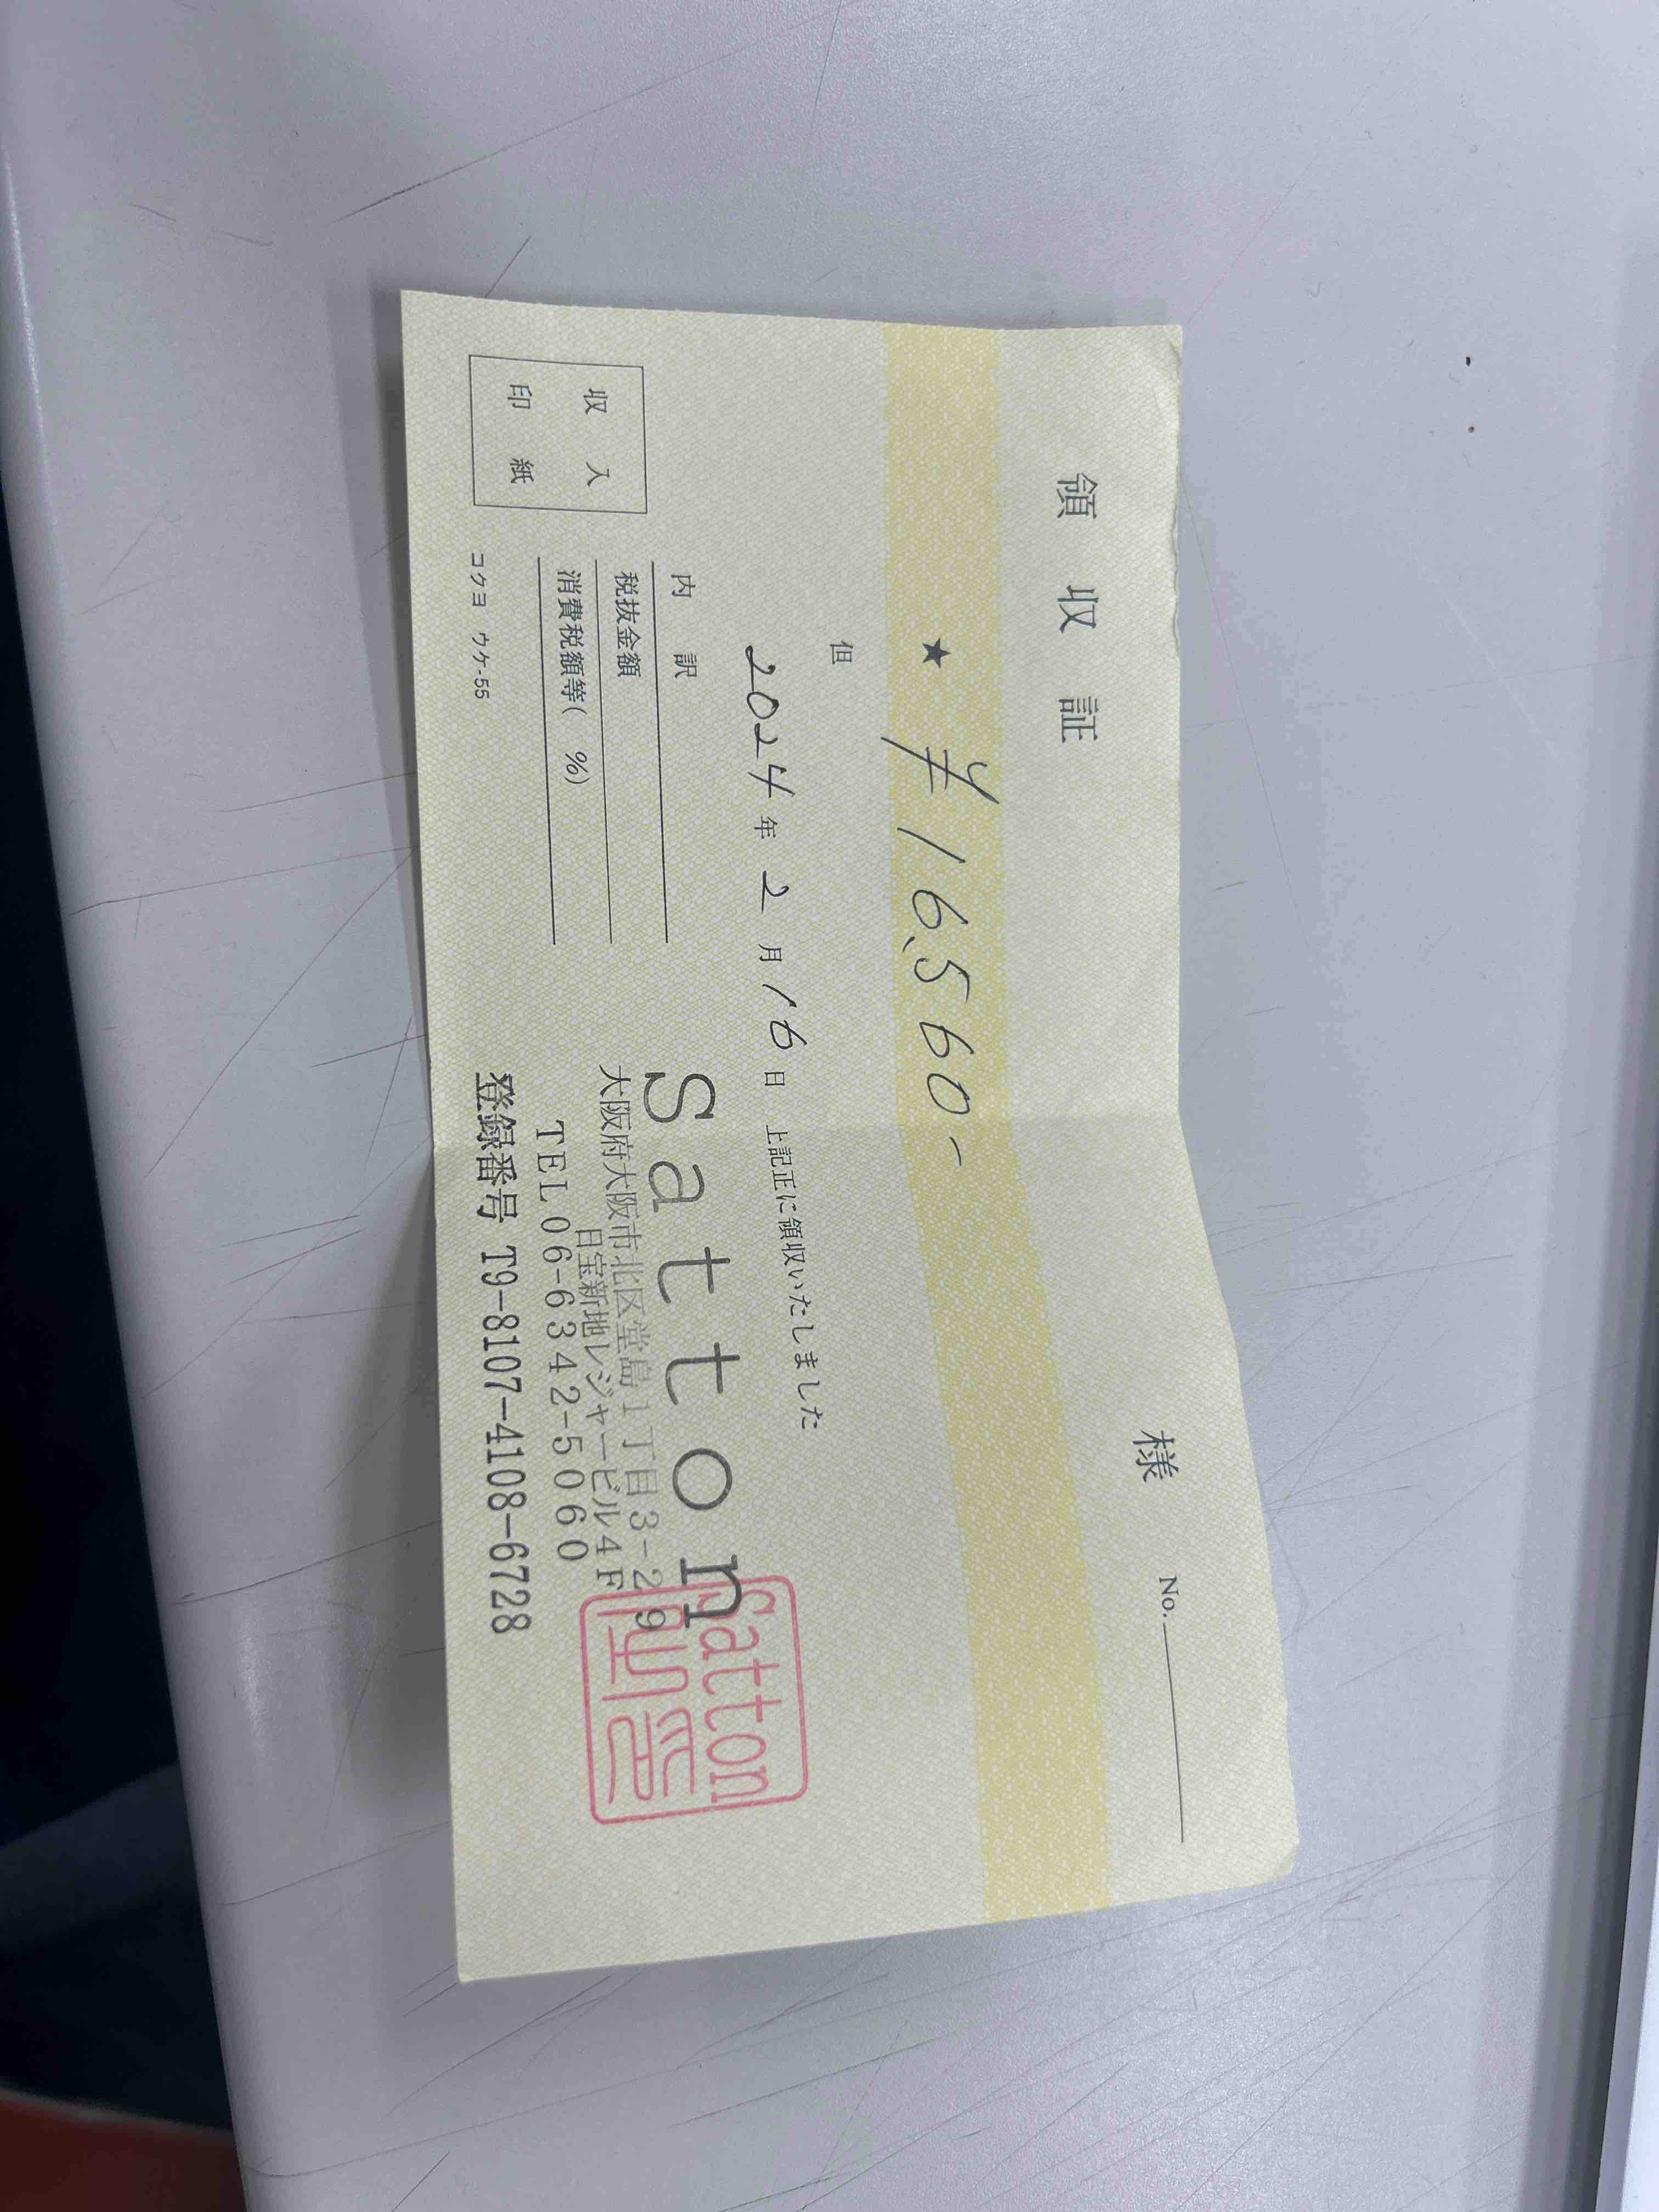 領収証
様
No.
★ ¥16,560-
但
2024年2月16日 上記正に領収いたしました
内訳
税抜金額
消費税額等( %)
収入
印紙
コクヨ ウケ-55
Satton
大阪府大阪市北区堂島1丁目3-29
日宝新地レジャービル4F
TEL06-6342-5060
登録番号 T9-8107-4108-6728
Satton